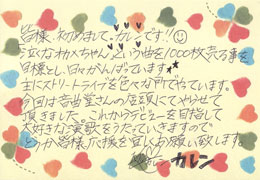 皆様、初めまして、カレンです!
泣くなカメちゃんという曲を1000枚売る事を
目標とし、日々がんばっています
主にストリートライブを色々な所でやっています。
今回は音曲堂さんの店頭にてやらせて
頂きました。これからデビューを目指して
大好きな演歌をうたっていきますので
どうか皆様、応援を宜しくお願い致します。
カレン